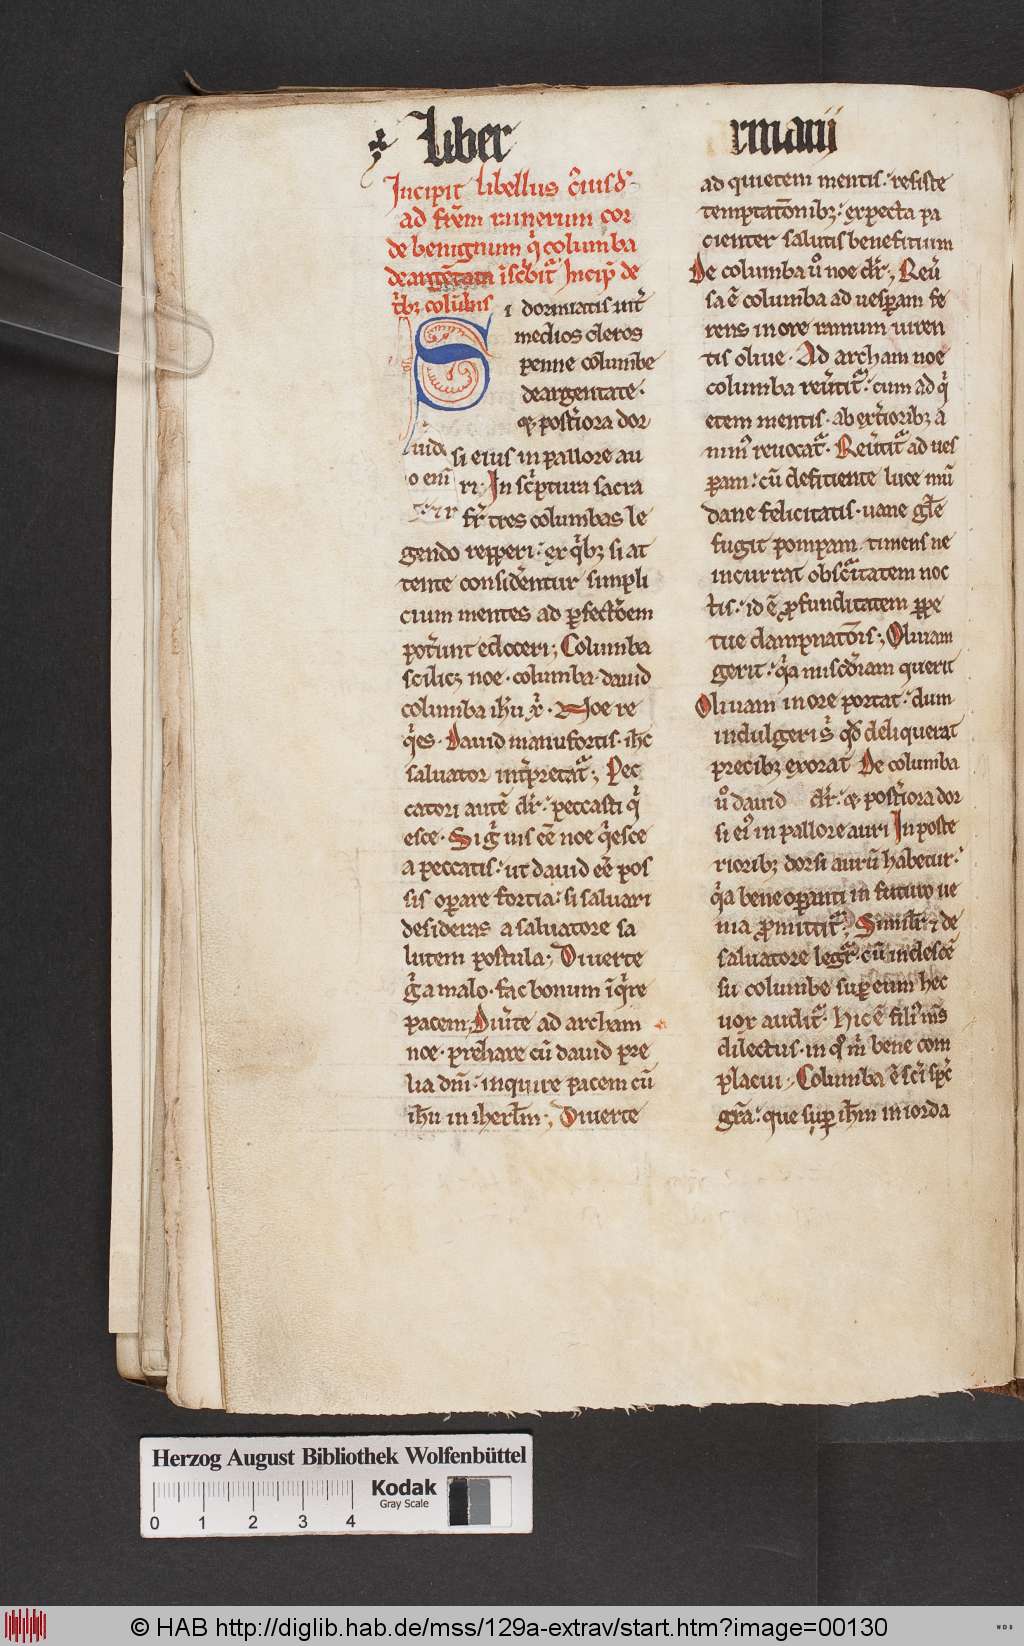 Liber
rmarij
Incipit libellus c̄iusd̄
ad fr̄em runerum cor
de benignum q̇ columba
deargētata īsc̄bit᷑ Incip̄ de
t̄bꝫ colūbis
Si dormiatis int̄
medios cleros
penne columbe
deargentate
et post̄iora dor
si eius in pallore au
ri In sc̄ptura sacra
fr̄ tres columbas le
gendo repperi ex q̇bꝫ si at
tente consid̄entur simpli
cium mentes ad ꝑfectōem
pot̄unt edoceri Columba
scilicꝫ noe columba dauid
columba ih̄u xp̄i Noe re
q̇es Dauid manufortis ih̄c
saluator int̄pretat᷑ Pec
catori autē dr̄ peccasti q̇
esce Si g̊ uis eē noe q̇esce
a peccatis ut dauid eē pos
sis oꝑare fortia si saluari
desideras a saluatore sa
lutem postula Diuerte
g̊ a malo fac bonum īq̇re
pacem Diūte ad archam
noe preliare cū dauid pre
lia dn̄i inquire pacem cū
ih̄u in ihrl̄m Diuerte
ad quietem mentis resiste
temptatōnibꝫ expecta pa
cienter salutis benefitium
De columba ů noe dr̄ Reū
sa ē columba ad uesꝑam fe
rens in ore ramum uiren
tis oliue Ad archam noe
columba reūtit᷑ cum ad q̇
etem mentis ab ext̄ioribꝫ a
nim᷒ reuocat᷑ Reūtit᷑ ad ues
ꝑam cū deficiente luce mū
dane felicitatis uane gl̄e
fugit pompam timens ne
incurrat obsc̄itatem noc
tis id ē ꝓfunditatem ꝑpe
tue dampnatōis Oliuam
gerit q̇a miscd̄iam querit
Oliuam in ore portat dum
indulgeri s̄ qd̄ deliquerat
precibꝫ exorat De columba
ů dauid dr̄ et post̄iora dor
si ei᷒ in pallore auri In poste
rioribꝫ dorsi aurū habetur
q̇a bene oꝑanti in futuro ue
nia ꝓmittit᷑ Simil̄r ⁊ de
saluatore legr̄ cū in descē
su columbe suꝑ eum hec
uox audit᷑ Hic ē fili᷒ m̄s
dilectus in q̊ m̄ bene com
placui Columba ē sc̄i sp̄c
gr̄a que suꝑ ih̄m in iorda
Herzog August Bibliothek Wolfenbüttel
Kodak
Gray Scale
0 1 2 3 4
© HAB http://diglib.hab.de/mss/129a-extrav/start.htm?image=00130